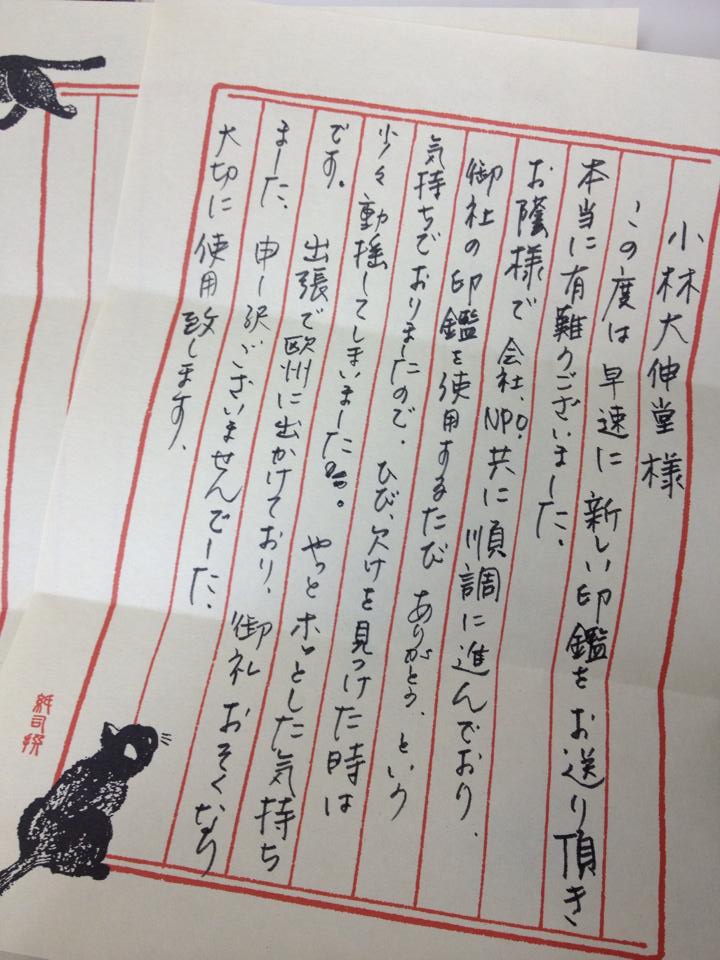 小林大伸堂様
この度は早速に新しい印鑑をお送り頂き
本当に有難うございました、
お蔭様で会社、NPO、共に順調に進んでおり、
御社の印鑑を使用するたびありがとう、という
気持ちでおりましたので、ひび、欠けを見つけた時は
少々動揺してしまいました。やっとホッとした気持ち
です。出張で欧州に出かけており、御礼おそくなり
ました、申し訳ございませんでした、
大切に使用致します、
紙司撰